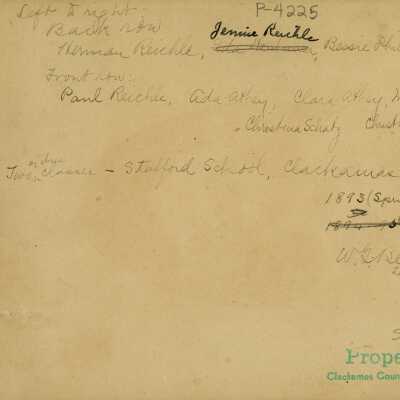 Left to right:
P-4225
Back row
Jennie Reichle
Herman Reichle, Bessie
Front row:
Paul Reichle, Ada Athey, Clara Athey, M
Christina Schatz Christ
Two or three classes - Stafford School, Clackamas
1893 (Spri
W. G. Be
Prope
Clackamas Coun